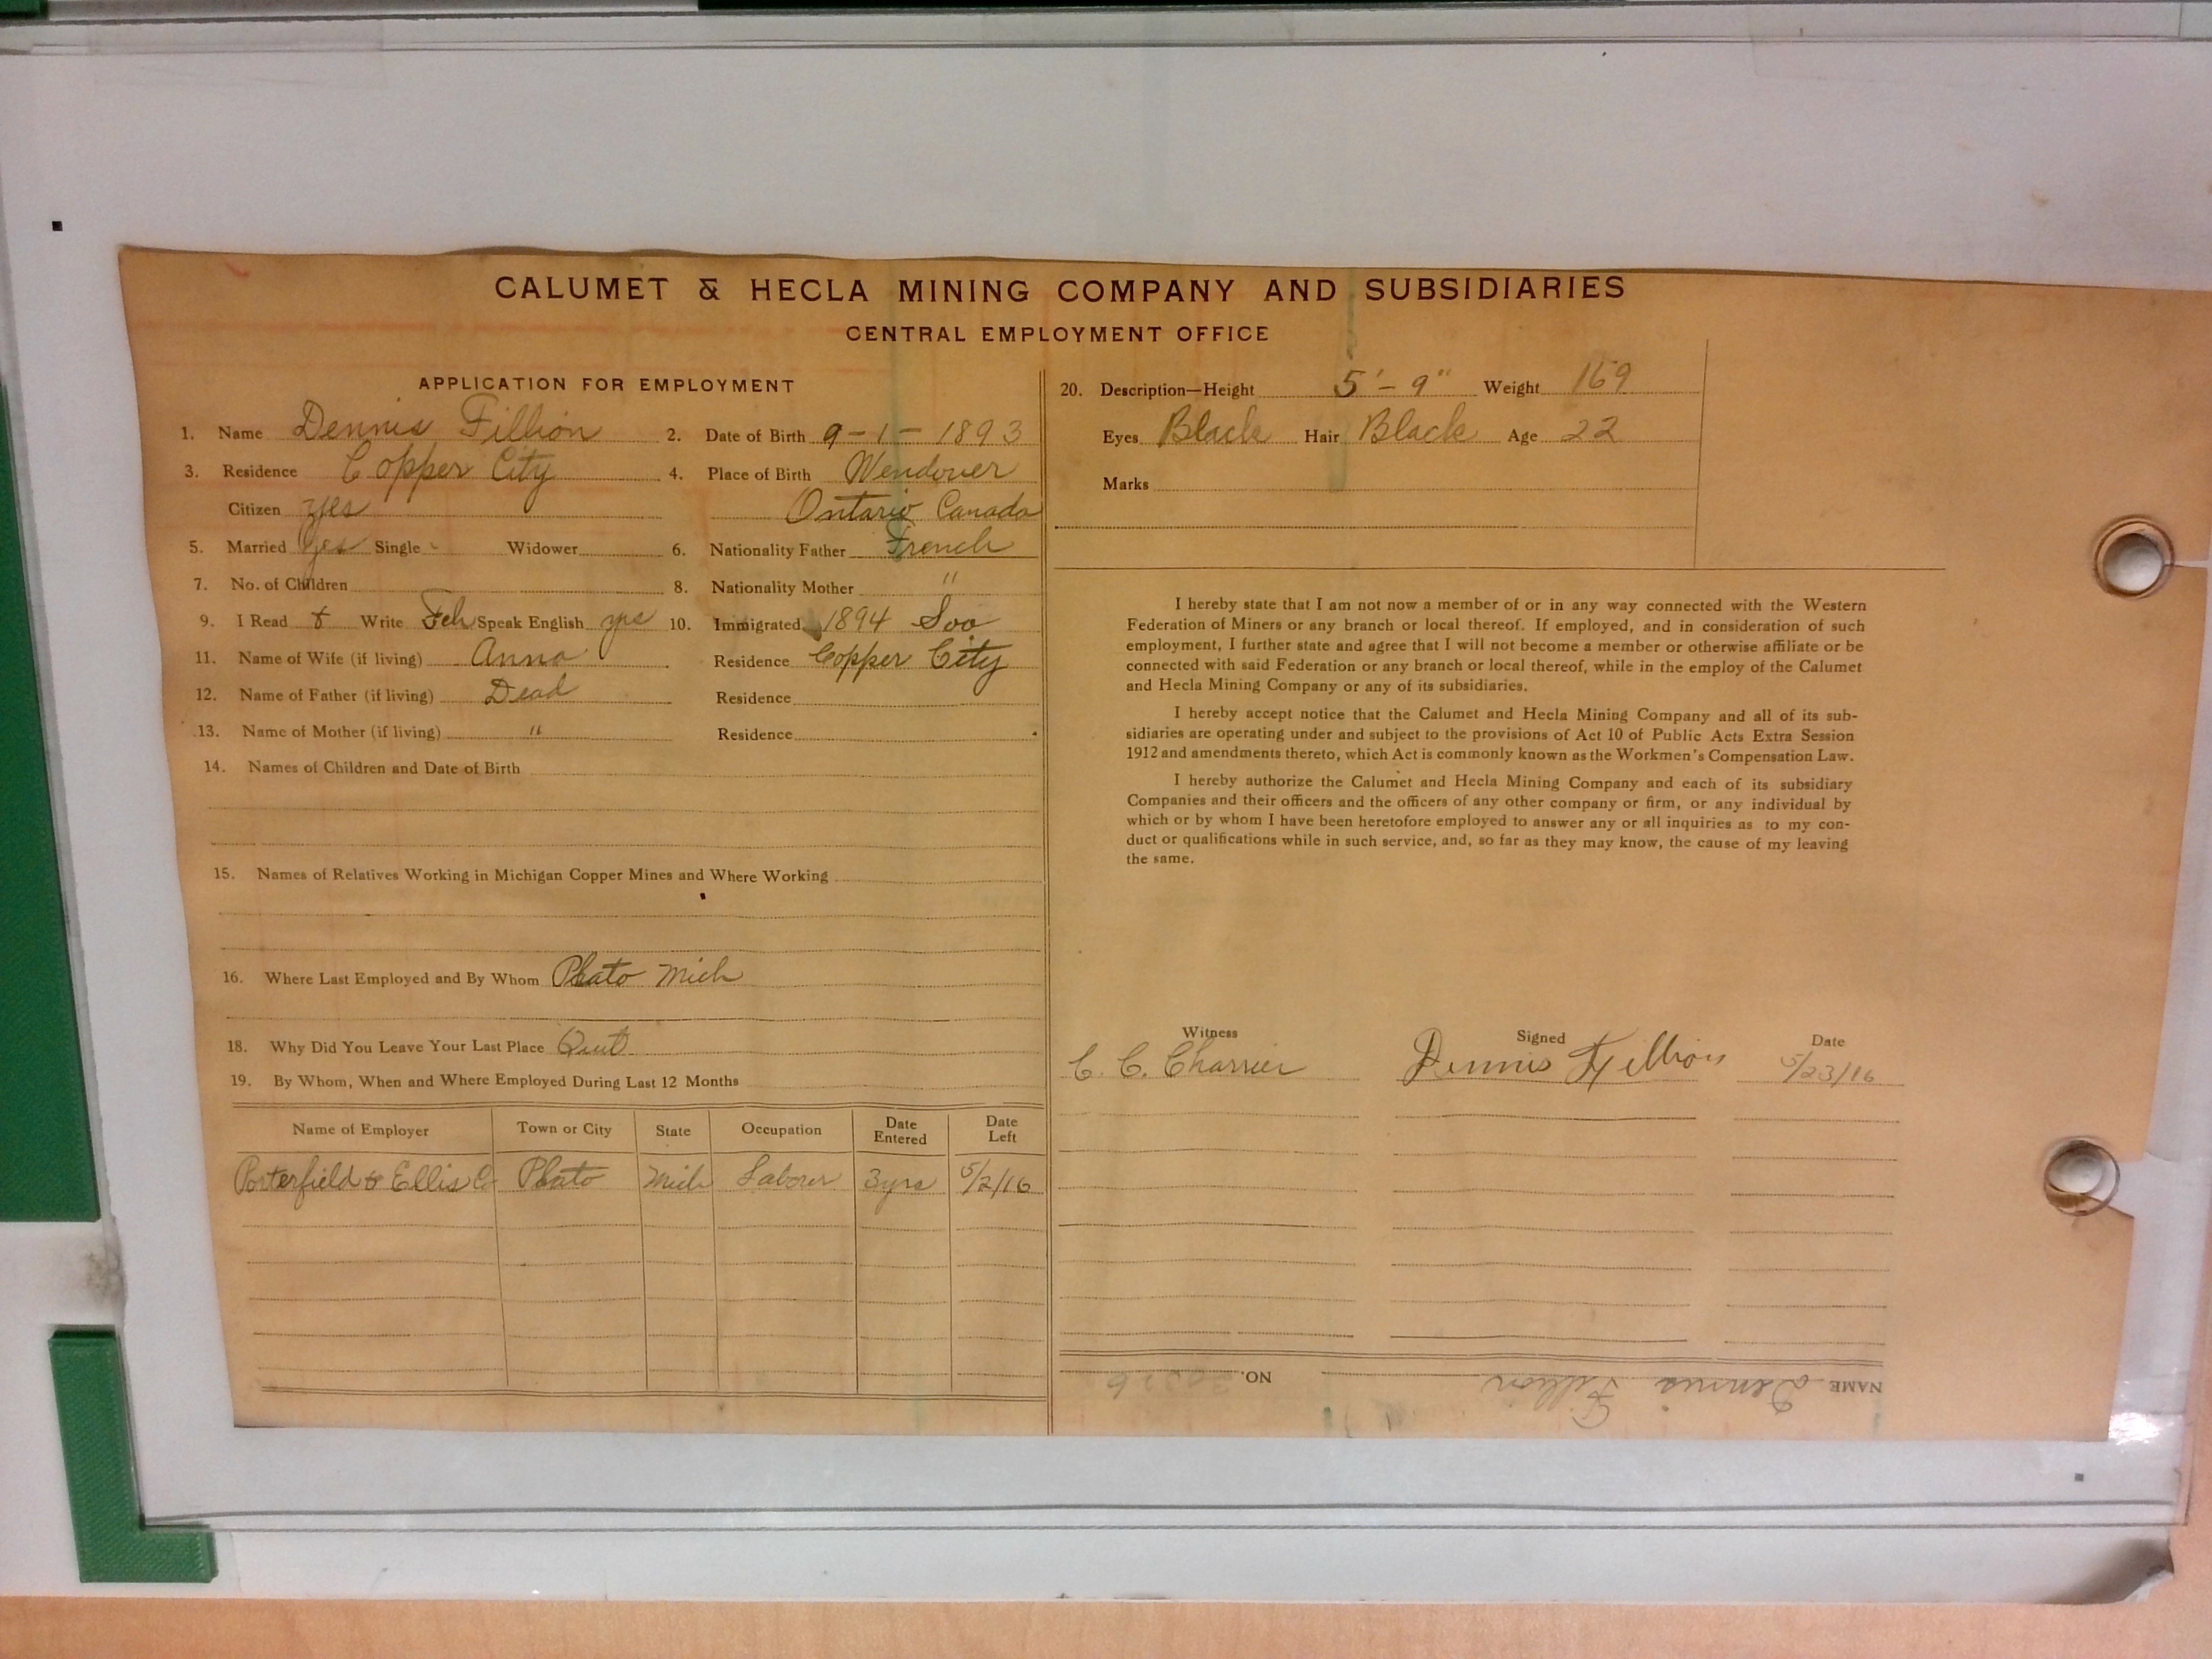 CALUMET & HECLA MINING COMPANY AND SUBSIDIARIES
CENTRAL EMPLOYMENT OFFICE
APPLICATION FOR EMPLOYMENT
1. Name Dennis Fillion 2. Date of Birth 9-1-1893
3. Residence Copper City 4. Place of Birth Wendover
Citizen yes Ontario Canada
5. Married Yes Single Widower 6. Nationality Father French
7. No. of Children 8. Nationality Mother "
9. I Read & Write Speak English yes 10. Immigrated 1894 Soo
11. Name of Wife (if living) Anna Residence Copper City
12. Name of Father (if living) Dead Residence
13. Name of Mother (if living) " Residence
14. Names of Children and Date of Birth
15. Names of Relatives Working in Michigan Copper Mines and Where Working
16. Where Last Employed and By Whom Plato Mich
18. Why Did You Leave Your Last Place Quit
19. By Whom, When and Where Employed During Last 12 Months
Name of Employer Town or City State Occupation Date Entered Date Left
Porterfield & Ellis Co Plato Mich Laborer 3yrs 5/2/16
20. Description—Height 5'-9" Weight 169
Eyes Black Hair Black Age 22
Marks
I hereby state that I am not now a member of or in any way connected with the Western
Federation of Miners or any branch or local thereof. If employed, and in consideration of such
employment, I further state and agree that I will not become a member or otherwise affiliate or be
connected with said Federation or any branch or local thereof, while in the employ of the Calumet
and Hecla Mining Company or any of its subsidiaries.
I hereby accept notice that the Calumet and Hecla Mining Company and all of its sub-
sidiaries are operating under and subject to the provisions of Act 10 of Public Acts Extra Session
1912 and amendments thereto, which Act is commonly known as the Workmen's Compensation Law.
I hereby authorize the Calumet and Hecla Mining Company and each of its subsidiary
Companies and their officers and the officers of any other company or firm, or any individual by
which or by whom I have been heretofore employed to answer any or all inquiries as to my con-
duct or qualifications while in such service, and, so far as they may know, the cause of my leaving
the same.
Witness Signed Date
C. C. Charrier Dennis Fillion 5/23/16
NAME Dennis Fillion NO.